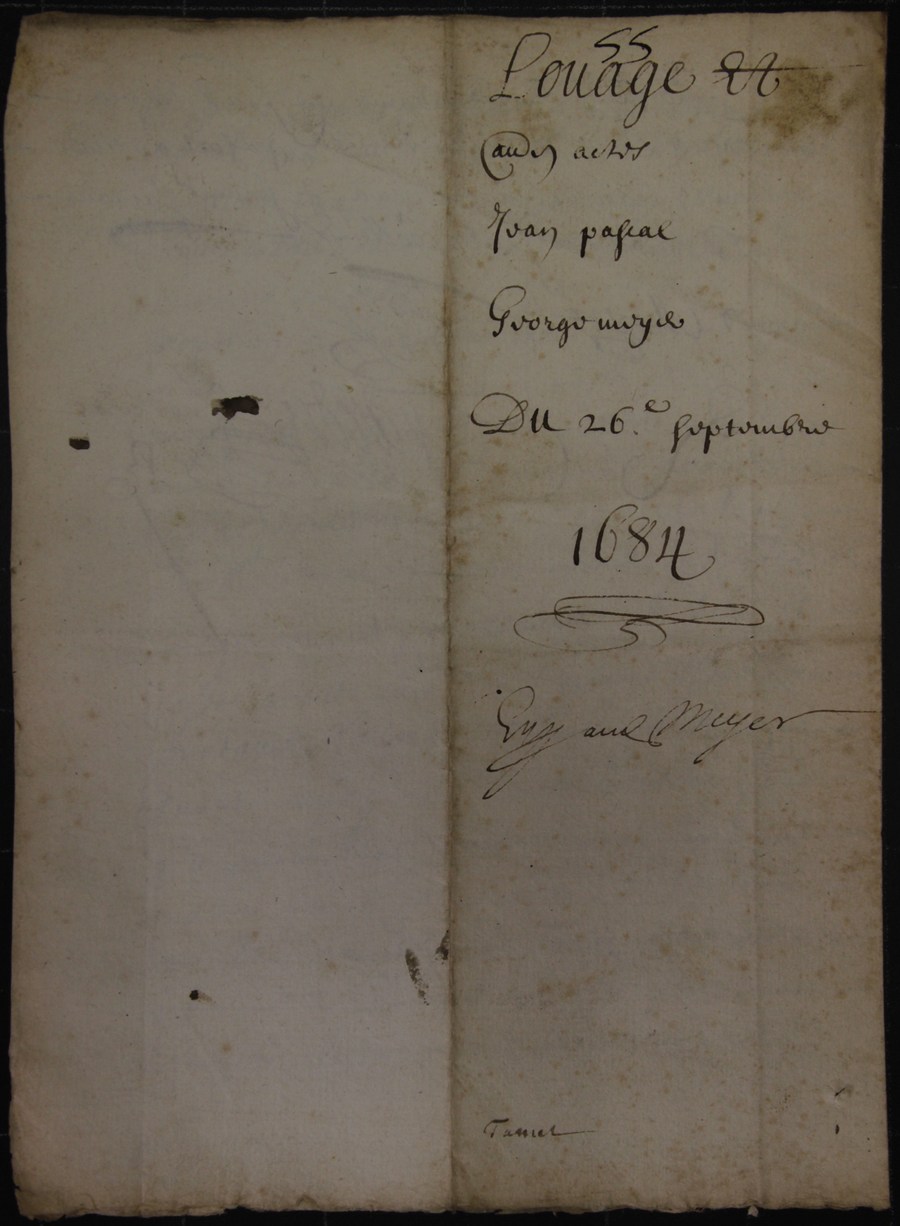 55
Louage &
actes
Jean pascal
George meyer
Du 26.e septembre
1684
and Meyer